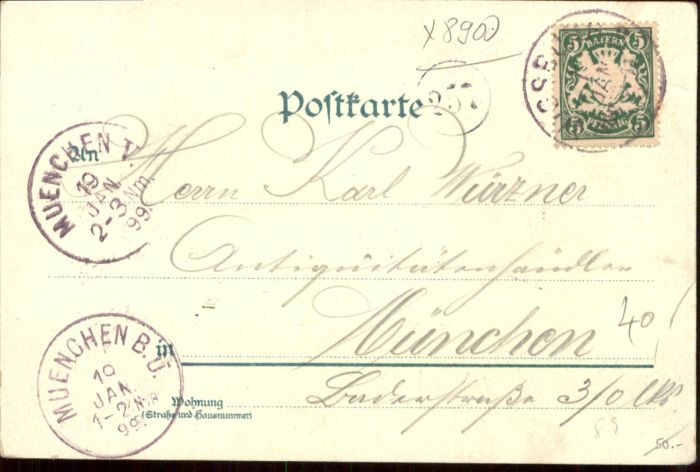 x8900
5 BAYERN 5
5 PFENNIG 5
Postkarte
257
An
Herrn Karl Würzner
Antiquitätenhändler
in München
40
Wohnung
(Straße und Hausnummer)
Baderstraße 3/0 lks
MUENCHEN V.
19
JAN
2-3 Nm.
99.
MUENCHEN B.Ü.
19
JAN.
1-2 Nm
99.
JAN
50.-